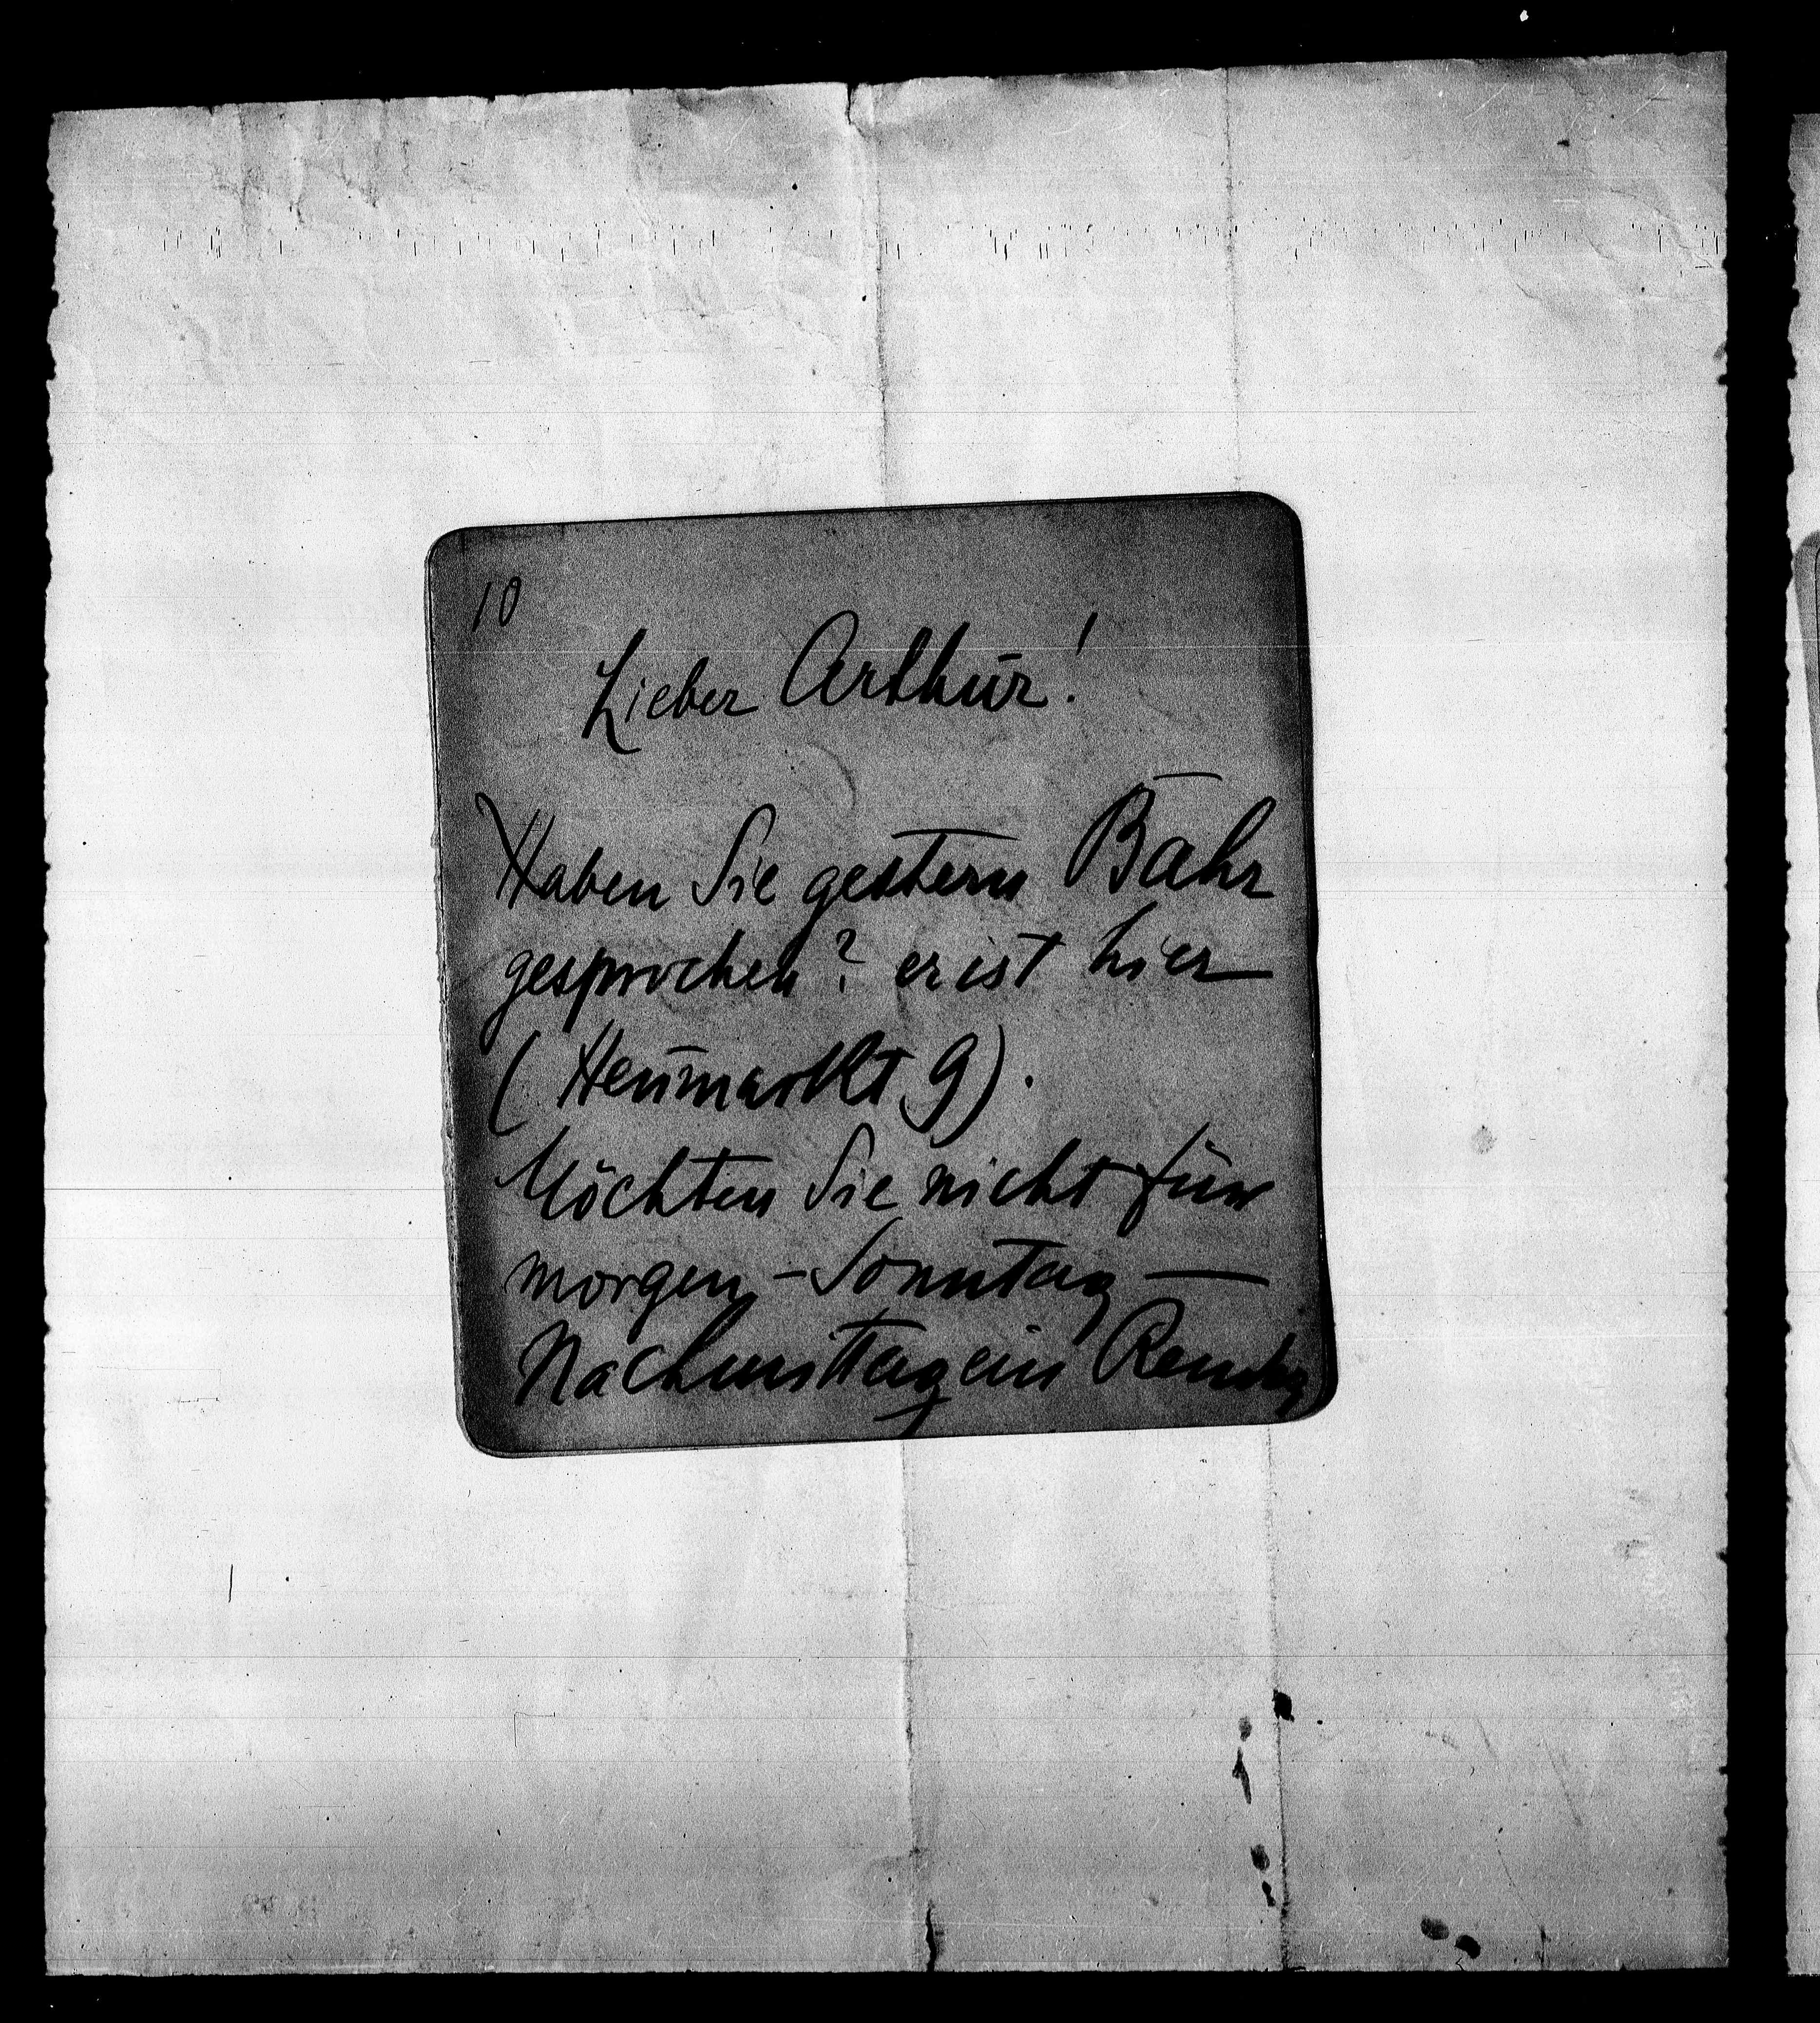 10
Lieber Arthur!
Haben Sie gestern Bahr
gesprochen? er ist hier
(Heumarkt 9).
Möchten Sie nicht für
morgen – Sonntag –
Nachmittag ein